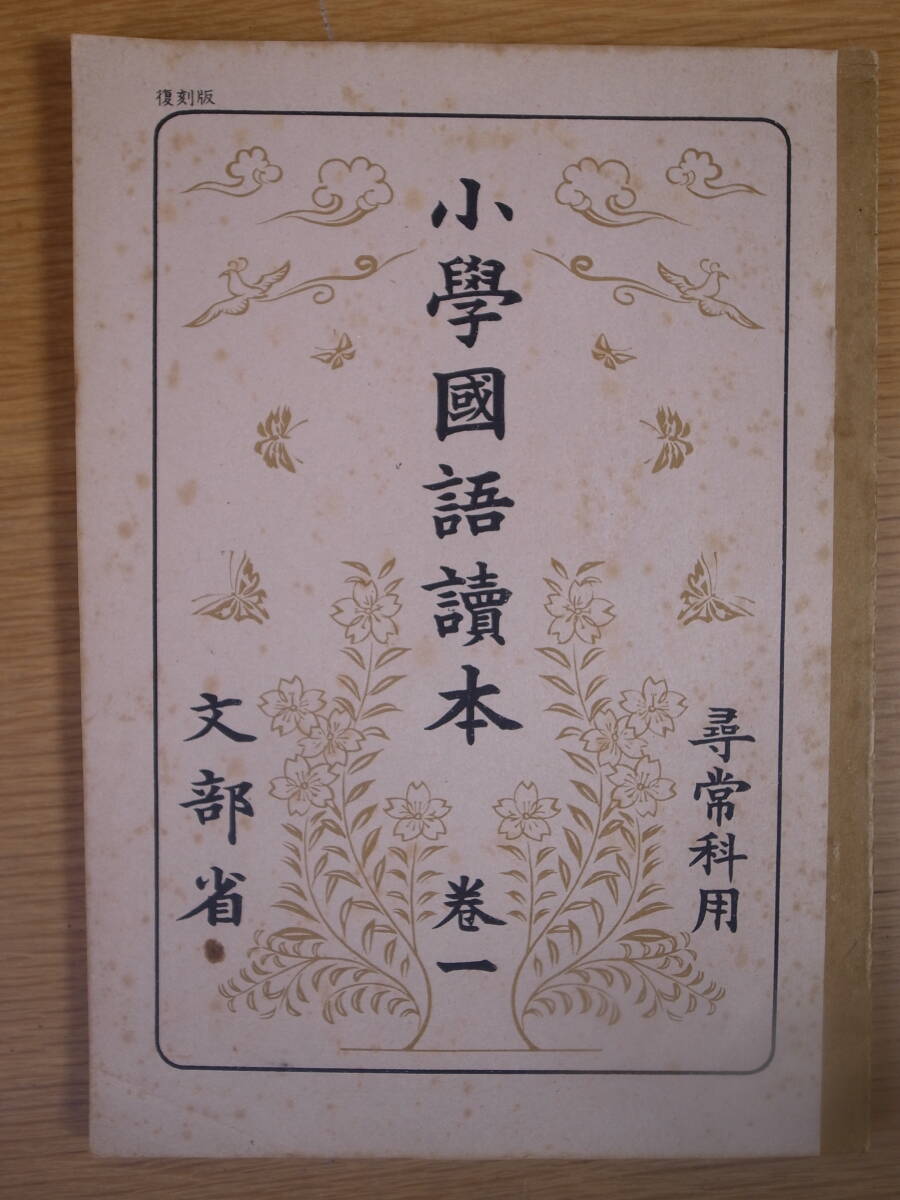 復刻版
尋常科用
小學國語讀本
卷一
文部省